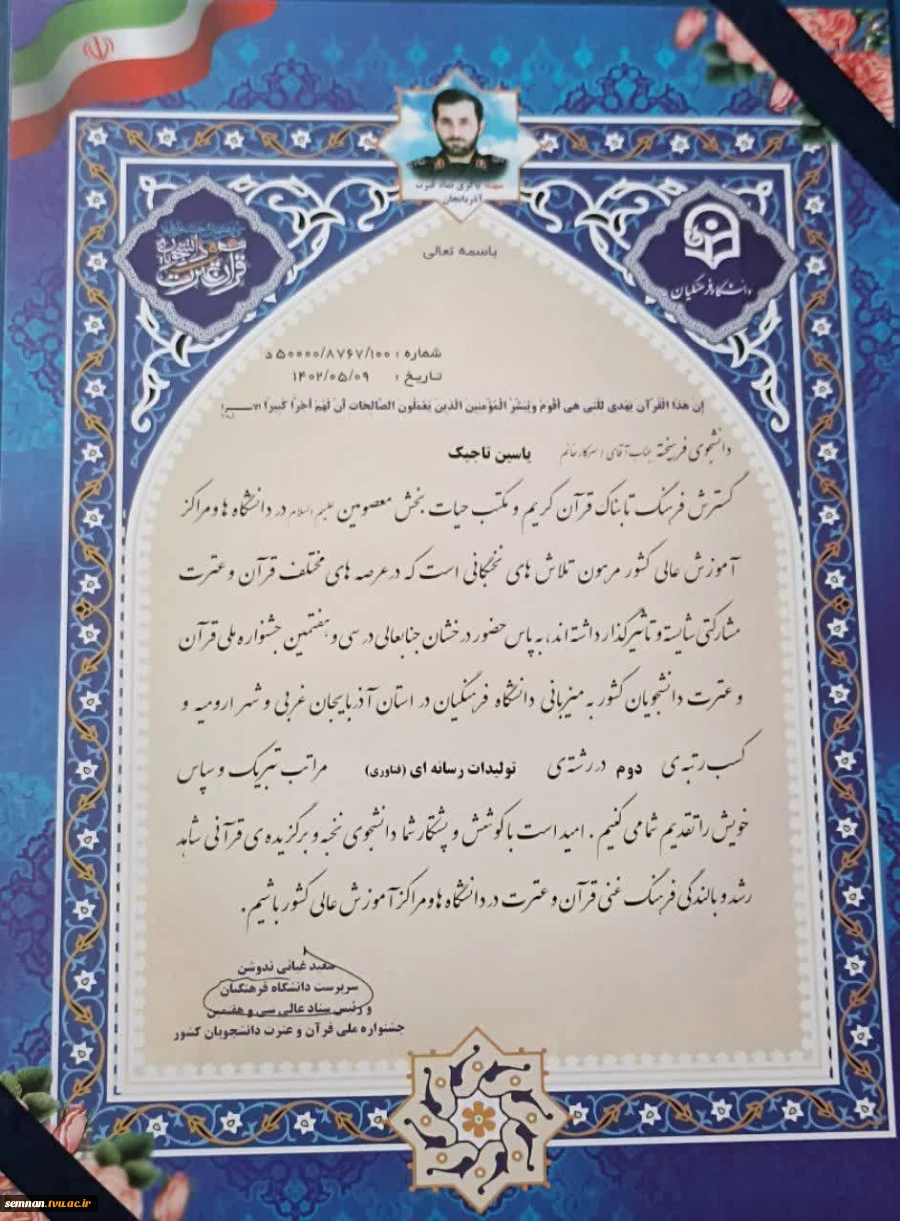 شهید باکری نماد غیرت
آذربایجان
باسمه تعالی
قرآن و عترت
دانشگاه فرهنگیان
شماره : ۵۰۰۰۰/۸۷۶۷/۱۰۰ د
تاریخ : ۱۴۰۲/۰۵/۰۹
إن هَذَا الْقُرْآنَ يَهْدِي لِلَّتِي هِيَ أَقْوَمُ وَيُبَشِّرُ الْمُؤْمِنِينَ الَّذِينَ يَعْمَلُونَ الصَّالِحَاتِ أَنَّ لَهُمْ أَجْرًا كَبِيرًا
دانشجوی فرهیخته جناب آقای / سرکار خانم یاسین تاجیک
گسترش فرهنگ تابناک قرآن کریم و مکتب حیات بخش معصومین علیهم السلام در دانشگاه ها و مراکز
آموزش عالی کشور مرهون تلاش های نخبگانی است که در عرصه های مختلف قرآن و عترت
مشارکتی شایسته و تاثیرگذار داشته اند، به پاس حضور درخشان جنابعالی در سی و هفتمین جشنواره ملی قرآن
و عترت دانشجویان کشور به میزبانی دانشگاه فرهنگیان در استان آذربایجان غربی و شهر ارومیه و
کسب رتبه ی دوم در رشته ی تولیدات رسانه ای (فناوری) مراتب تبریک و سپاس
خویش را تقدیم شما می کنیم . امید است با کوشش و پشتکار شما دانشجوی نخبه و برگزیده ی قرآنی شاهد
رشد و بالندگی فرهنگ غنی قرآن و عترت در دانشگاه ها و مراکز آموزش عالی کشور باشیم .
سعید غیاثی ندوشن
سرپرست دانشگاه فرهنگیان
و رئیس ستاد عالی سی و هفتمین
جشنواره ملی قرآن و عترت دانشجویان کشور
semnan.tvu.ac.ir